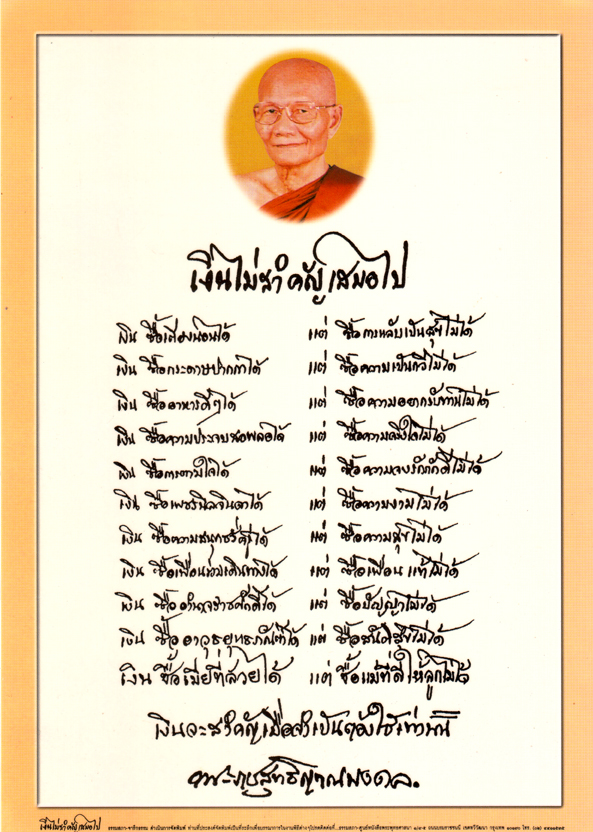 เงินไม่สำคัญเสมอไป
เงิน ซื้อเตียงนอนได้ แต่ ซื้อการหลับเป็นสุขไม่ได้
เงิน ซื้อกระดาษปากกาได้ แต่ ซื้อความเป็นกวีไม่ได้
เงิน ซื้ออาหารดีๆได้ แต่ ซื้อความอยากรับทานไม่ได้
เงิน ซื้อความประจบสอพลอได้ แต่ ซื้อความจริงใจไม่ได้
เงิน ซื้อการตามใจได้ แต่ ซื้อความจงรักภักดีไม่ได้
เงิน ซื้อเพชรนิลจินดาได้ แต่ ซื้อความงามไม่ได้
เงิน ซื้อความสนุกชั่วครู่ได้ แต่ ซื้อความสุขไม่ได้
เงิน ซื้อเพื่อนร่วมเดินทางได้ แต่ ซื้อเพื่อนแท้ไม่ได้
เงิน ซื้ออำนาจราชศักดิ์ได้ แต่ ซื้อปัญญาไม่ได้
เงิน ซื้ออาวุธยุทธภัณฑ์ได้ แต่ ซื้อสันติสุขไม่ได้
เงิน ซื้อเมียที่สวยได้ แต่ ซื้อแม่ที่ดีให้ลูกไม่ได้
เงินจะสำคัญเมื่อจำเป็นต้องใช้เท่านั้น
พระราชสุทธิญาณมงคล.
เงินไม่สำคัญเสมอไป